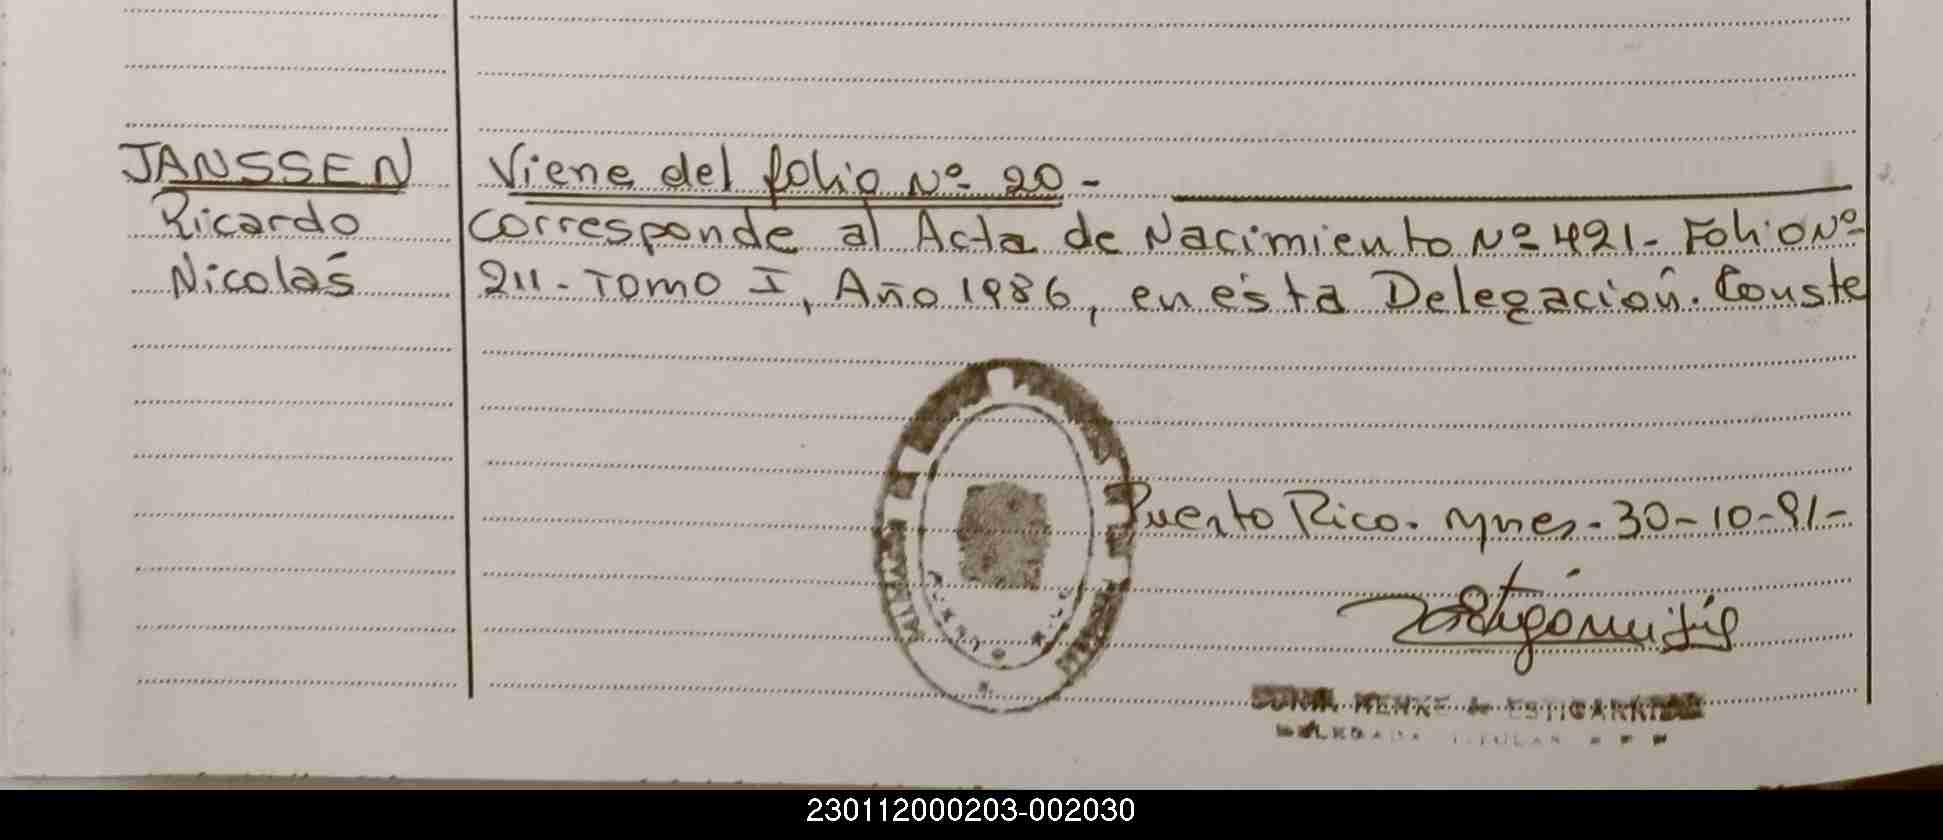 JANSSEN Viene del folio Nº 20 -
Ricardo Corresponde al Acta de Nacimiento Nº 421 - Folio Nº
Nicolás 211 - Tomo I, Año 1986, en ésta Delegación. Conste
Puerto Rico. Mnes - 30-10-91-
MENKE de ESTIGARRIBIA
DELEGADA TITULAR
230112000203-002030